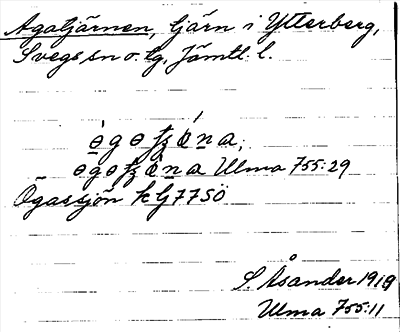 Agatjärnen, tjärn i Ytterberg,
Svegs sn o. tg, Jämtl. l.
Ulma 755:29
Ögassjön kG7750
S. Åsander 1919
Ulma 755:11